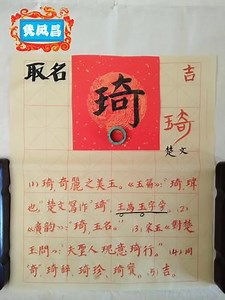 黄凤昌
取名
琦
吉
琦
楚文
(1)琦奇麗之美玉。《玉篇》:“琦瑋
也。”楚文寫作“琦”,玉為王字旁。(2)
《廣韵》:“琦,玉名。”(3)宋玉《對楚
王問》:“大聖人現意琦行。”(4)同
“奇”,琦辞,琦珍,琦寳。(5)吉。